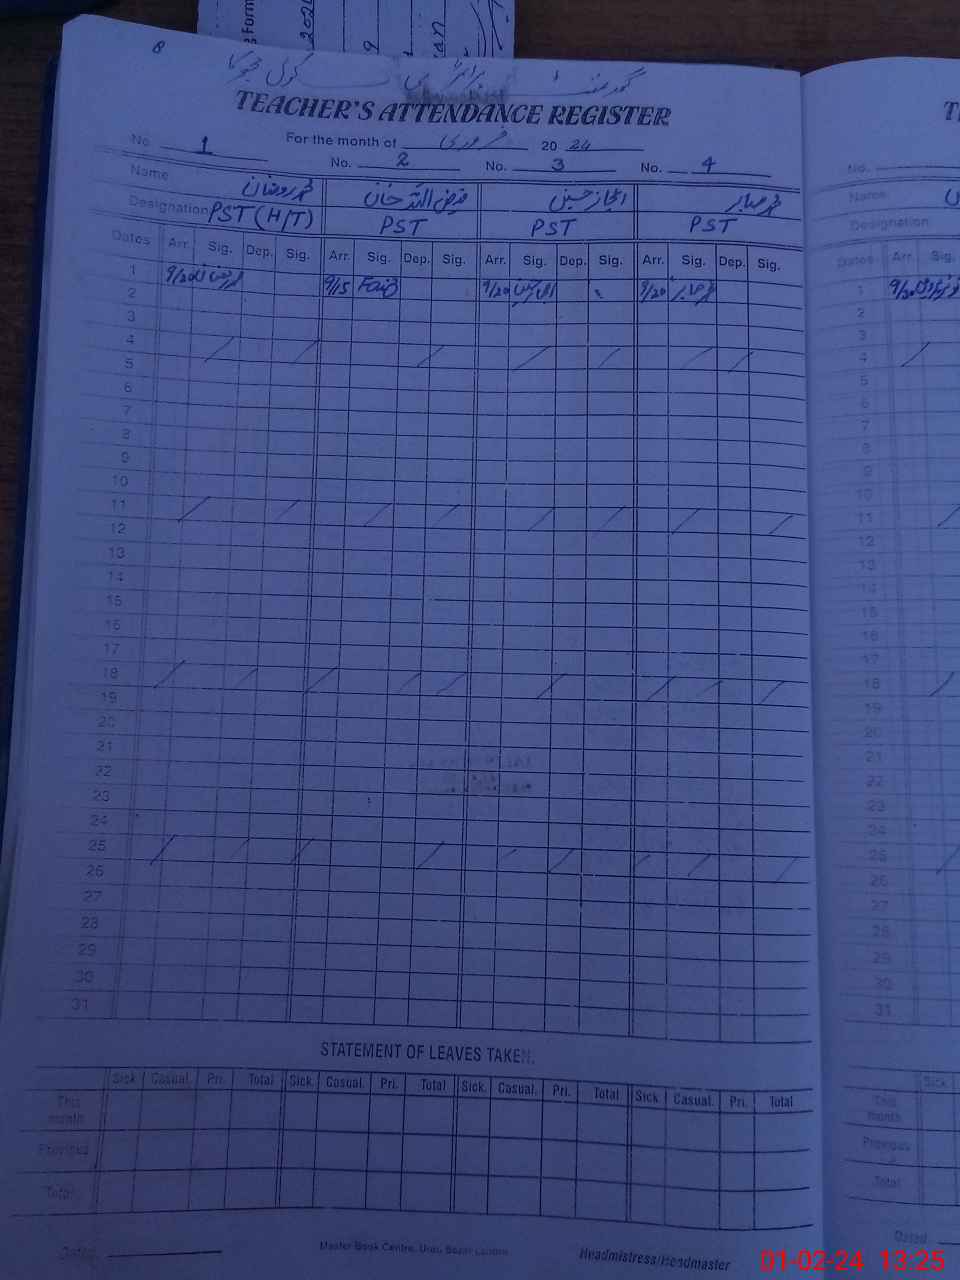 8
گورنمنٹ پرائمری
TEACHER'S ATTENDANCE REGISTER
For the month of فروری 20 24
No. 1 No. 2 No. 3 No. 4
Name محمد رمضان فیض اللہ خان اعجاز حسین محمد صابر
Designation PST (H/T) PST PST PST
Dates Arr. Sig. Dep. Sig. Arr. Sig. Dep. Sig. Arr. Sig. Dep. Sig. Arr. Sig. Dep. Sig.
1 9/20 9/15 Faiz 9/20 9/20
2
3
4
5
6
7
8
9
10
11
12
13
14
15
16
17
18
19
20
21
22
23
24
25
26
27
28
29
30
31
STATEMENT OF LEAVES TAKEN.
Sick Casual. Pri. Total Sick. Casual. Pri. Total Sick. Casual. Pri. Total Sick. Casual. Pri. Total
This month
Previous
Total
Dated
Master Book Centre, Urdu Bazar Lahore
Headmistress/Headmaster
No.
Name
Designation
Dates Arr. Sig.
1 9/20
2
3
4
5
6
7
8
9
10
11
12
13
14
15
16
17
18
19
20
21
22
23
24
25
26
27
28
29
30
31
Sick.
This month
Previous
Total
Dated
01-02-24 13:25